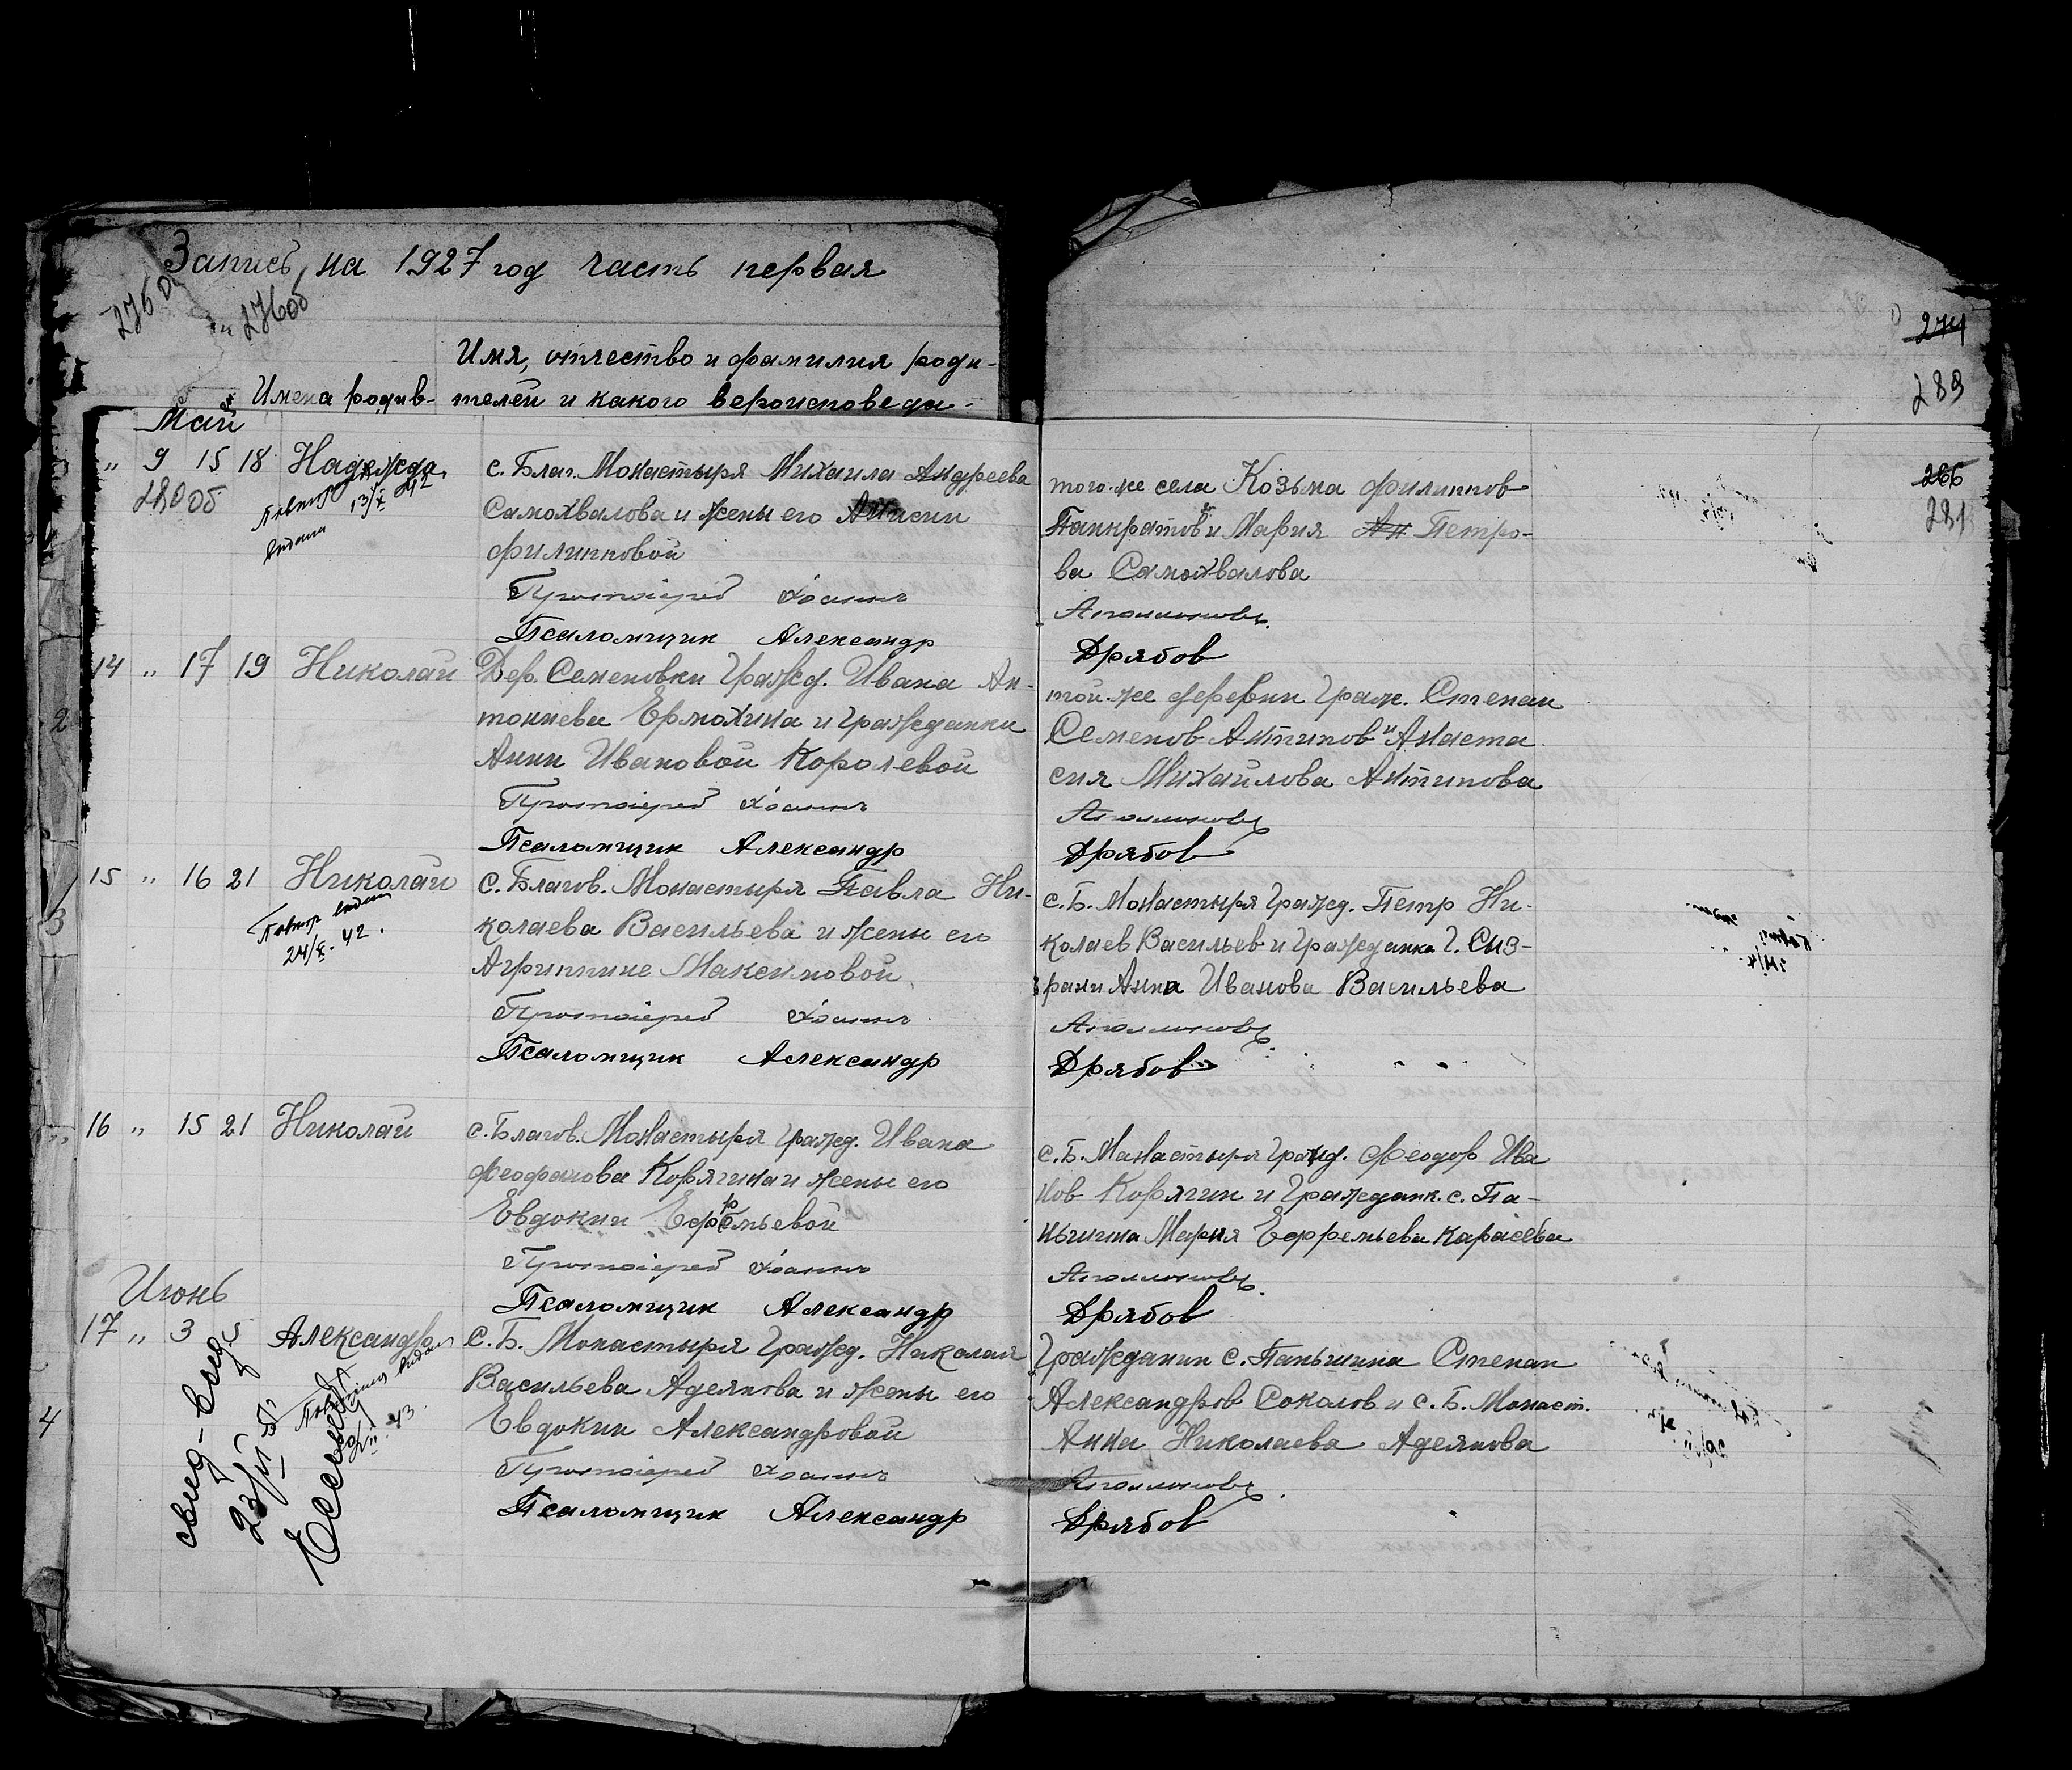 Запись на 1927 год часть первая
276 об
276об
Имя, отчество и фамилия роди-
Имена родив- телей и какого вероисповеда-
274
289
Май
„ 9 15 18 Надежда
280об
Повтор 13/X 42
выдана
с. Благ. Монастыря Михаила Андреева
Самохвалова и жены его Анисии
Филипповой
Протоіерей Іоаннъ
Псаломщик Александр
того-же села Козьма Филиппов
Панкратов и Мария Ан Петро-
ва Самохвалова
Аполлоновъ
Дрябов
266
281
14 „ 17 19 Николай
Дер. Семеновки Гражд. Ивана Ан-
тониева Ермохина и Гражданки
Анни Ивановой Королевой
Протоіерей Іоаннъ
Псаломщик Александр
той-же деревни Граж. Степан
Семенов Антипов и Анаста
сия Михайлова Антипова
Аполлоновъ
Дрябов
2
15 „ 16 21 Николай
Повтор выдан
24/X-42.
с. Благов. Монастыря Павла Ни-
колаева Васильева и жены его
Агриппине Максимовой
Протоіерей Іоаннъ
Псаломщик Александр
с. Б. Монастыря Гражд. Петр Ни-
колаев Васильев и Гражданка г. Сыз-
рани Анна Иванова Васильева
Аполлоновъ
Дрябов
3
16 „ 15 21 Николай
с. Благов. Монастыря гражд. Ивана
Феофанова Корягина и жены его
Евдокии Ефремьевой
Протоіерей Іоаннъ
Псаломщик Александр
с. Б. Манастыря Гражд. Феодор Ива
нов Корягин и Гражданк. с. Па-
ньшина Мария Ефремьева Карасева
Аполлоновъ
Дрябов
Июнь
17 „ 3 5 Александра
с. Б. Монастыря Гражд. Николая
Васильева Аделнова и жены его
Евдокии Александровой
Протоіерей Іоаннъ
Псаломщик Александр
Гражданин с. Паньшина Степан
Александров Соколов и с. Б. Монаст.
Анна Николаева Аделнова
Аполлоновъ
Дрябов
4